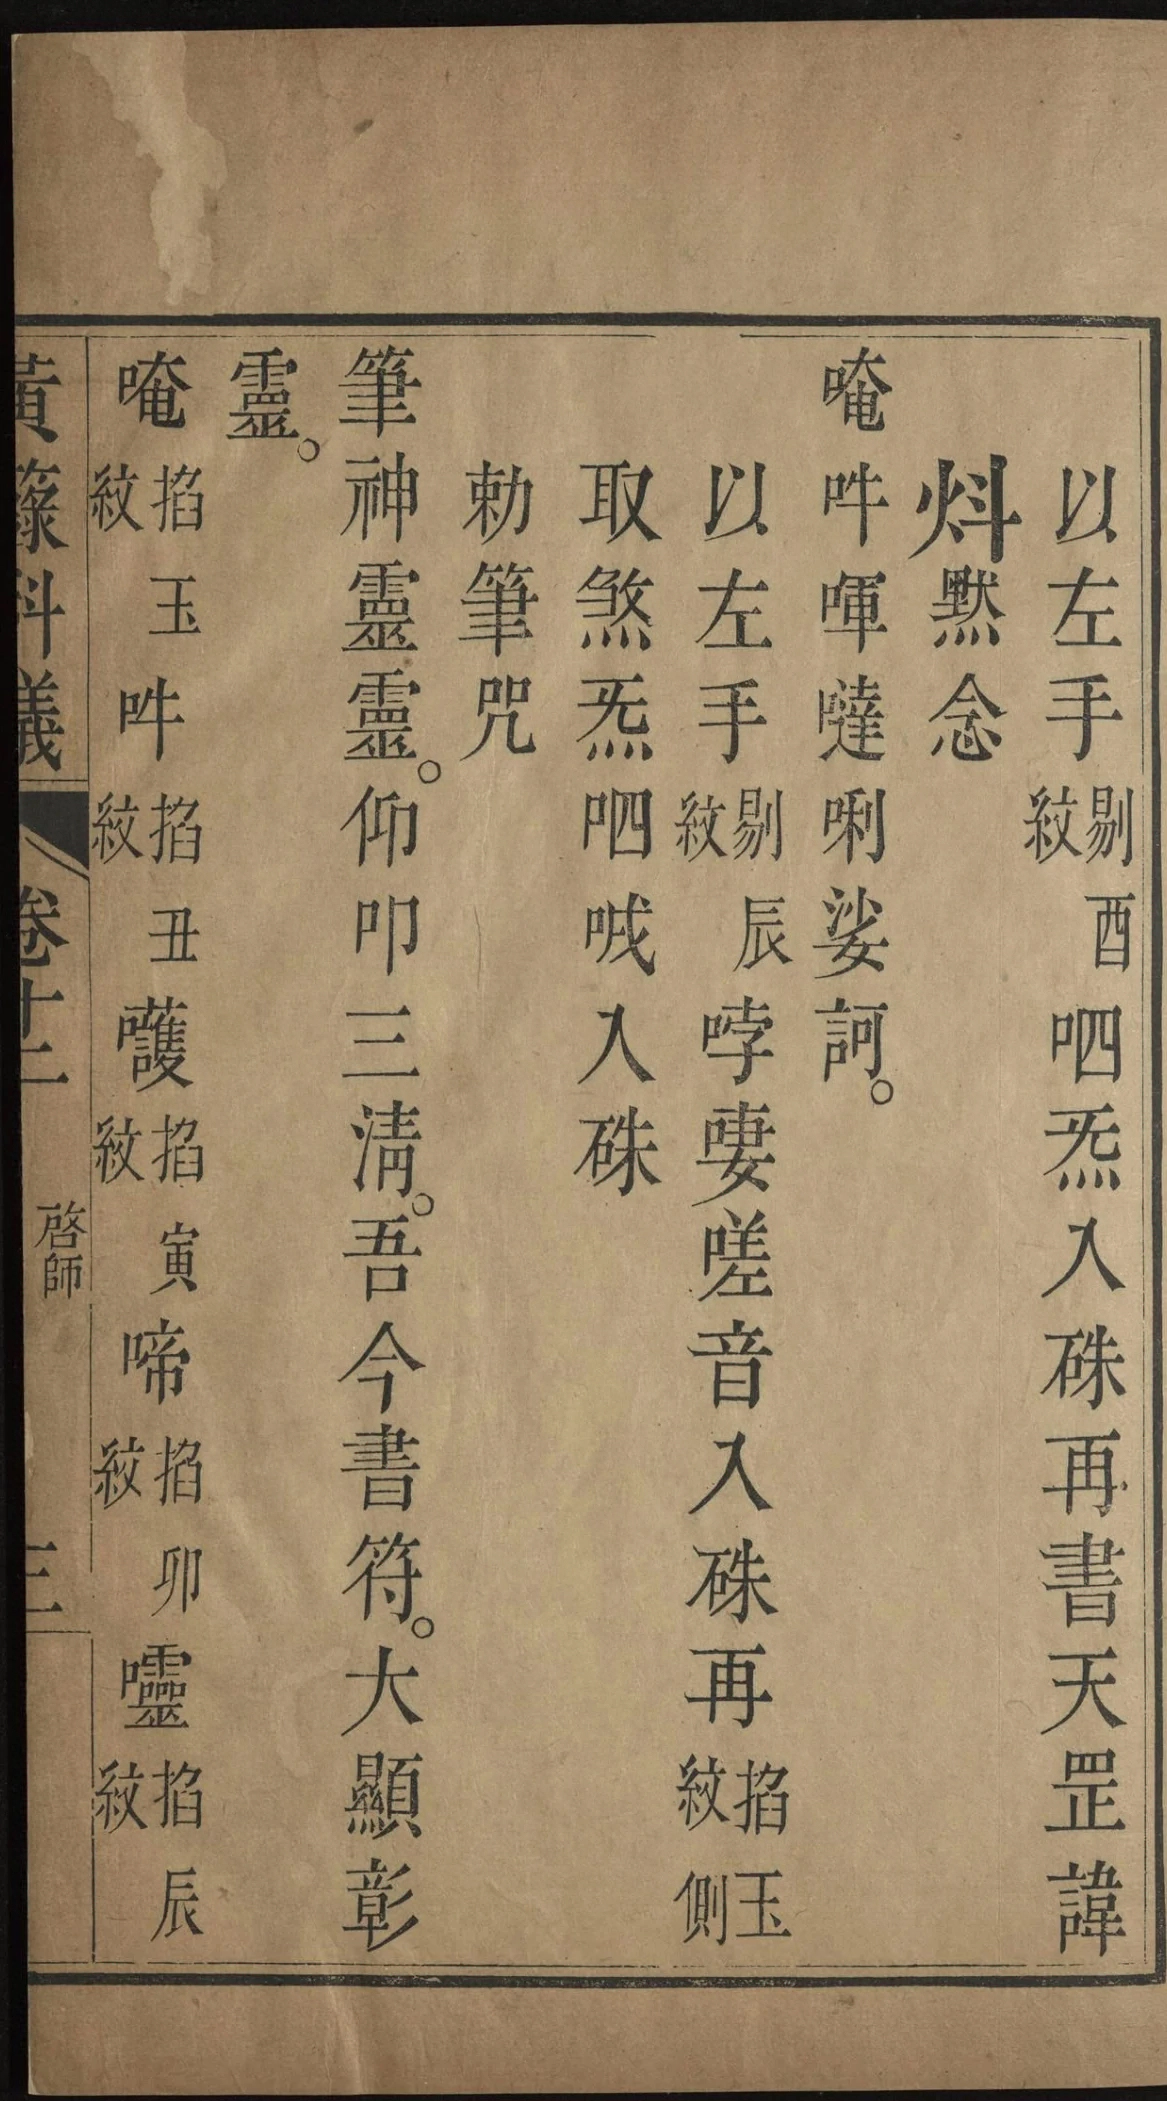 以左手剔酉紋呬炁入硃再書天罡諱
炓默念
唵吽㖞噠唎娑訶。
以左手剔辰紋哱嘍嗟音入硃再掐玉紋側
取煞炁呬喴入硃
勅筆咒
筆神靈靈。仰叩三清。吾今書符。大顯彰
靈。
唵掐玉紋吽掐丑紋嚄掐寅紋啼掐卯紋𡅖掐辰紋
黃籙科儀 卷十二 啓師 三